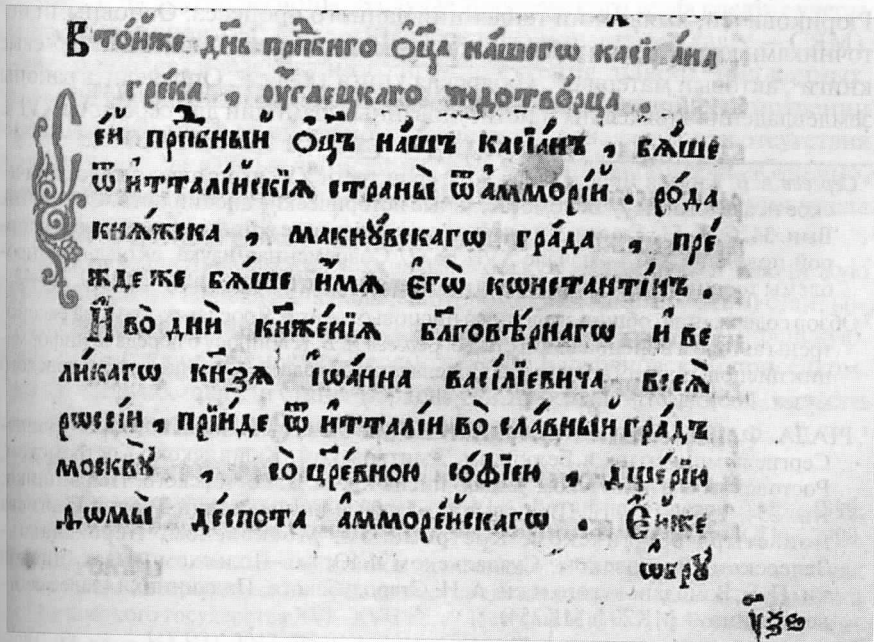 В то́йже дн҃ь прпⷣбнаго ѻ҆ц҃а на́шегѡ касїа́на
гре́ка , оу҆гле́цкаго чюдотво́рца .
Се́й прпⷣбный ѻ҆ц҃ъ на́шъ касїа́нъ , бѧ́ше
ѿ и҆ттали́йскїѧ страны̀ ѿ а҆ммо́рїй . ро́да
кнѧ́жеска , макнꙋ́вскагѡ гра́да , пре́
жде же бѧ́ше и҆́мѧ є҆гѡ̀ кѡнстанті́нъ .
И҆ во̀ дни̑ кн҃же́нїѧ бл҃гове́рнагѡ и҆ ве
ли́кагѡ кн҃зѧ і҆ѡа́нна васи́лїевича всеѧ̀
рѡссі́й , прїи́де ѿ и҆ттали́и во̀ сла́вный гра́дъ
москвꙋ̀ , со цр҃е́вною со́фїею , дще́рїю
дѡмы̀ де́спота а҆мморе́йскагѡ . Є҆́йже
ѡ҆крꙋ